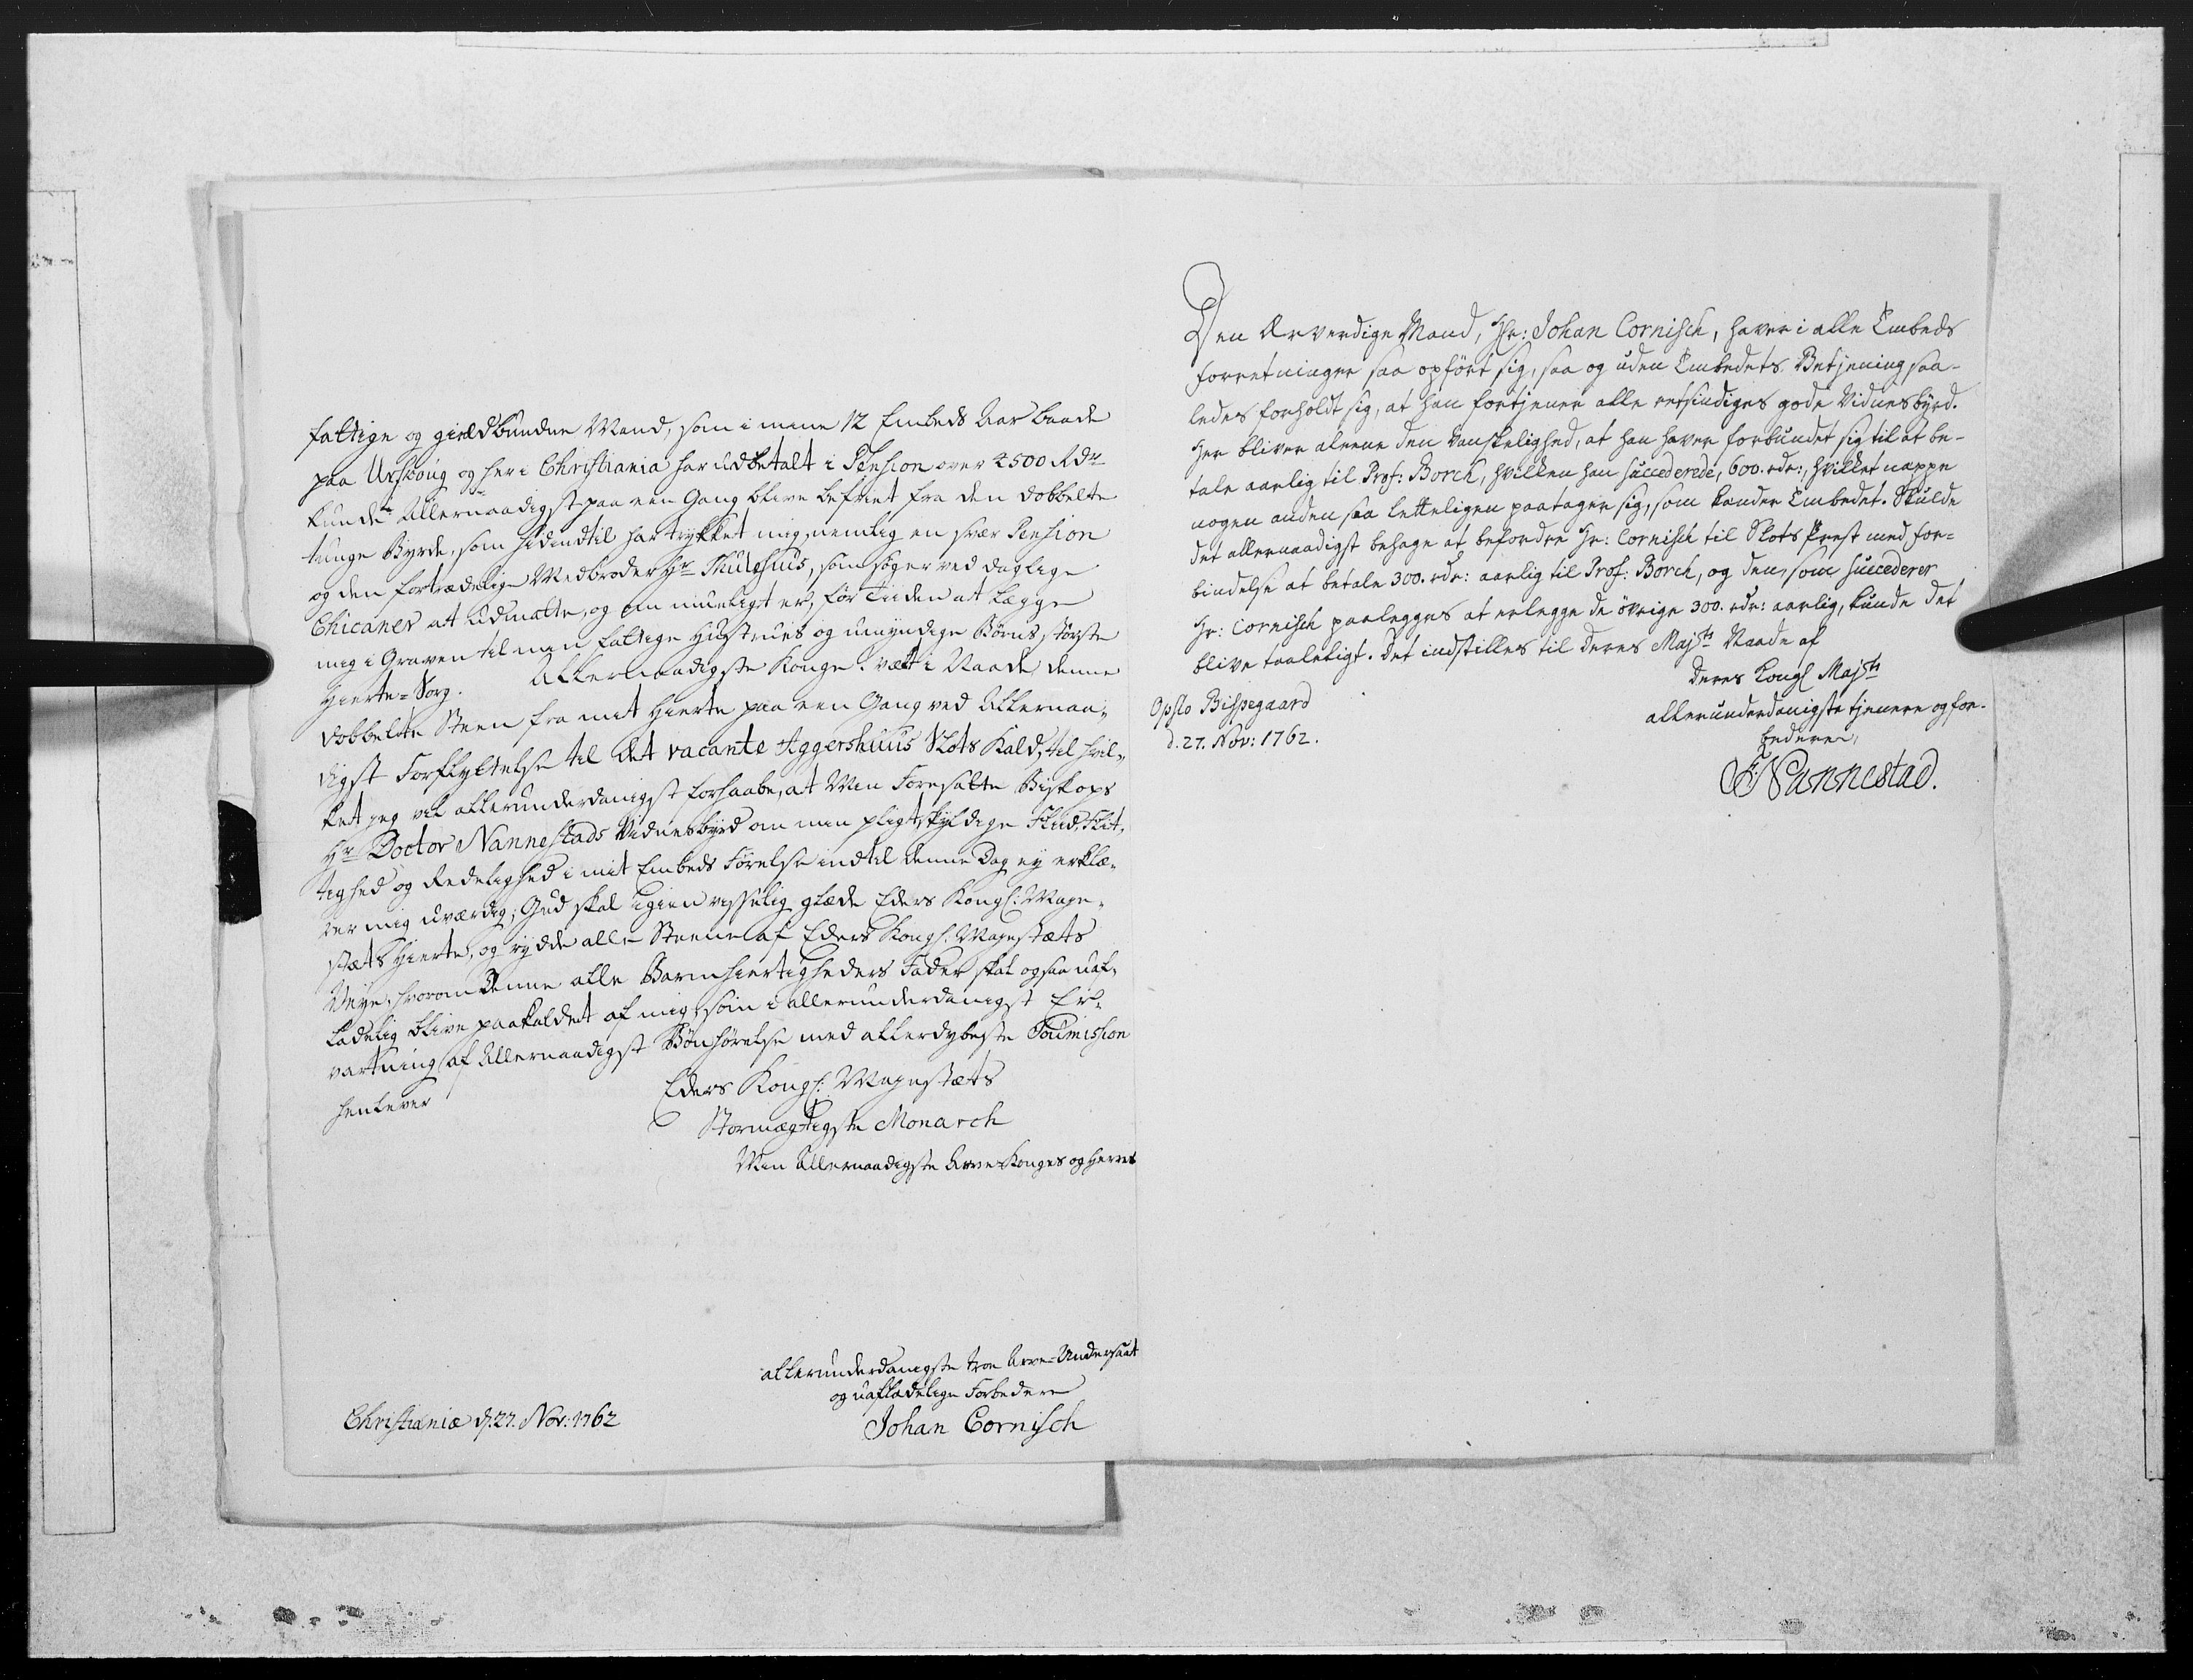 fattige og gieldbundne Mand, som i mine 12 Embeds Aar baade
paa Urskoug og her i Christiania har udbetalt i Pension over 2500 Rdr
kunde Allernaadigst paa een Gang blive befriet fra den dobbelte
tunge Byrde, som hidindtil har trykket mig, nemlig en svær Pension
og den fortrædelige Medbroder Hr Thulesius, som søger ved daglige
Chicaner at udmatte, og om mueligt er, før Tiiden at lægge
mig i Graven til min fattige Hustrues og umyndige Børns største
Hierte-Sorg. Allernaadigste Konge! vælt i Naade denne
dobbelte Steen fra mit Hierte paa een Gang ved Allernaa-
digst Forflyttelse til det vacante Aggershuus Slots Kald, til hvil-
ket jeg vil allerunderdanigst forhaabe, at Min Foresatte Biskops
Hr Doctor Nannestads Vidnesbyrd om min pligtskyldige Fliid, Flit-
tighed og Redelighed i mit Embeds Førelse indtil denne Dag ey erklæ-
rer mig uværdig; Gud skal igien visselig glæde Eders Kongl: Maye-
stæts Hierte, og rydde alle Steene af Eders Kongl: Mayestæts
Veye, hvorom denne alle Barmhiertigheders Fader skal ogsaa uaf-
ladelig blive paakaldet af mig, som i allerunderdanigst Er-
vartning af Allernaadigst Bønhørelse med allerdybeste Soumission
henlever
Eders Kongl: Mayestæts
Stormægtigste Monarch
Min Allernaadigste Arve-Konges og Herres
allerunderdanigste troe Arve-Undersaat
og uafladelige Forbedere
Christiania d: 27. Nov: 1762
Johan Cornisch
Den Ærverdige Mand, Hr: Johan Cornisch, haver i alle Embeds
forretninger saa opført sig, saa og uden Embedets Betjening saa-
ledes forholdt sig, at han fortjener alle retsindiges gode Vidnesbyrd.
Her bliver aleene den Vanskelighed, at han haver forbundet sig til at be-
tale aarlig til Prof: Borch, hvilken han succederede, 600. rdr:, hvilket neppe
nogen anden saa letteligen paatager sig, som kander Embedet. Skulde
det allernaadigst behage at befordre Hr: Cornisch til Slots Prest med for-
bindelse at betale 300. rdr: aarlig til Prof: Borch, og den, som succederer
Hr: Cornisch paalegges at erlegge de øvrige 300. rdr: aarlig, kunde det
blive taaleligt. Det indstilles til Deres Majsts Naade af
Deres Kongl Majsts
Opslo Bispegaard
d. 27. Nov: 1762.
allerunderdanigste tjenere og for-
bedere,
F Nannestad.